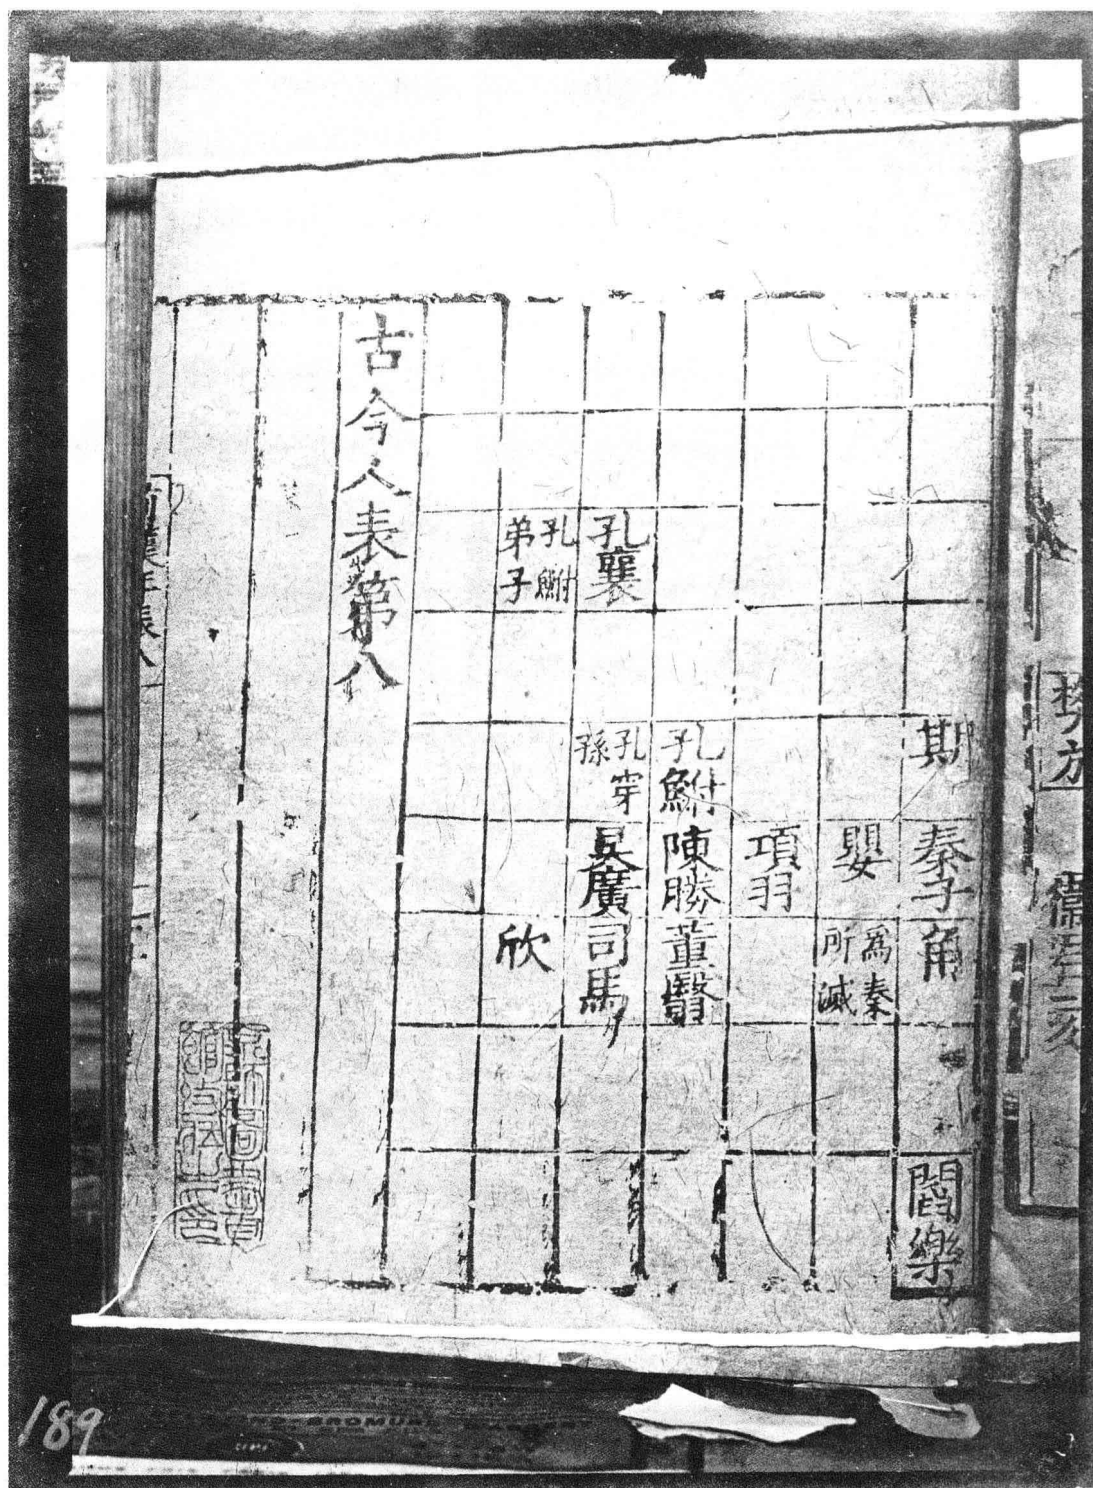 期
秦子
角
閻樂
嬰
爲秦
所滅
項羽
孔鮒
陳勝
董翳
孔襄
孔穿
孫
吴廣
司馬
孔鮒
弟子
欣
古今人表第八
189